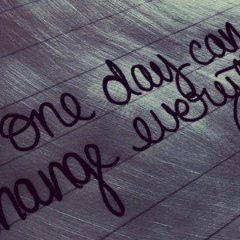 one day can
change every